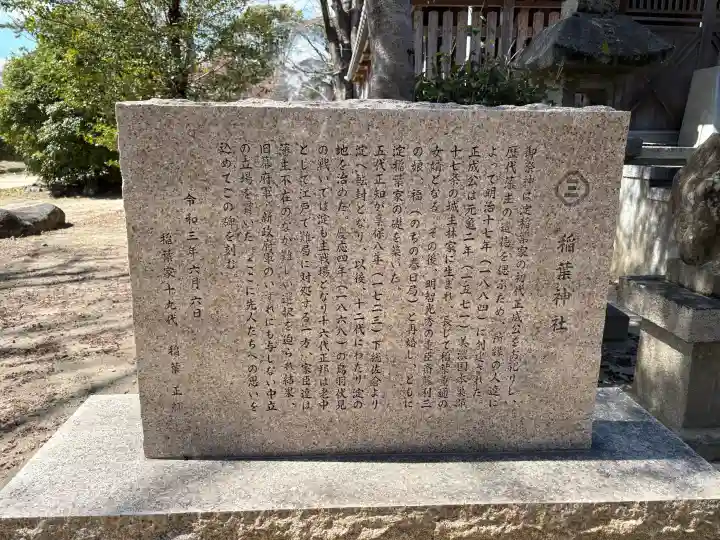 稲葉神社
御祭神は淀稲葉家の初代正成公をお祀りし、
歴代藩主の遺徳を偲ぶため、所縁の人達に
よって明治十七年(一八八四)に創建された。
正成公は元亀二年(一五七一)美濃国本巣郡
十七条の城主林家に生まれ、長じて稲葉重通の
女婿となる。その後、明智光秀の重臣斎藤利三
の娘、福(のちの春日局)と再婚し、ともに
淀稲葉家の礎を築いた。
五代正知が享保八年(一七二三)下総佐倉より
淀へ転封となり、以後、十二代にわたり淀の
地を治めた。慶応四年(一八六八)の鳥羽伏見
の戦いでは淀も主戦場となり十六代正邦は老中
として江戸で難局に対処する一方、家臣達は
藩主不在のなか難しい選択を迫られ結果、
旧幕府軍、新政府軍のいずれにも与しない中立
の立場を貫いた。ここに先人たちへの思いを
込めてこの碑を刻む。
令和三年六月六日
稲葉家十九代 稲葉 正